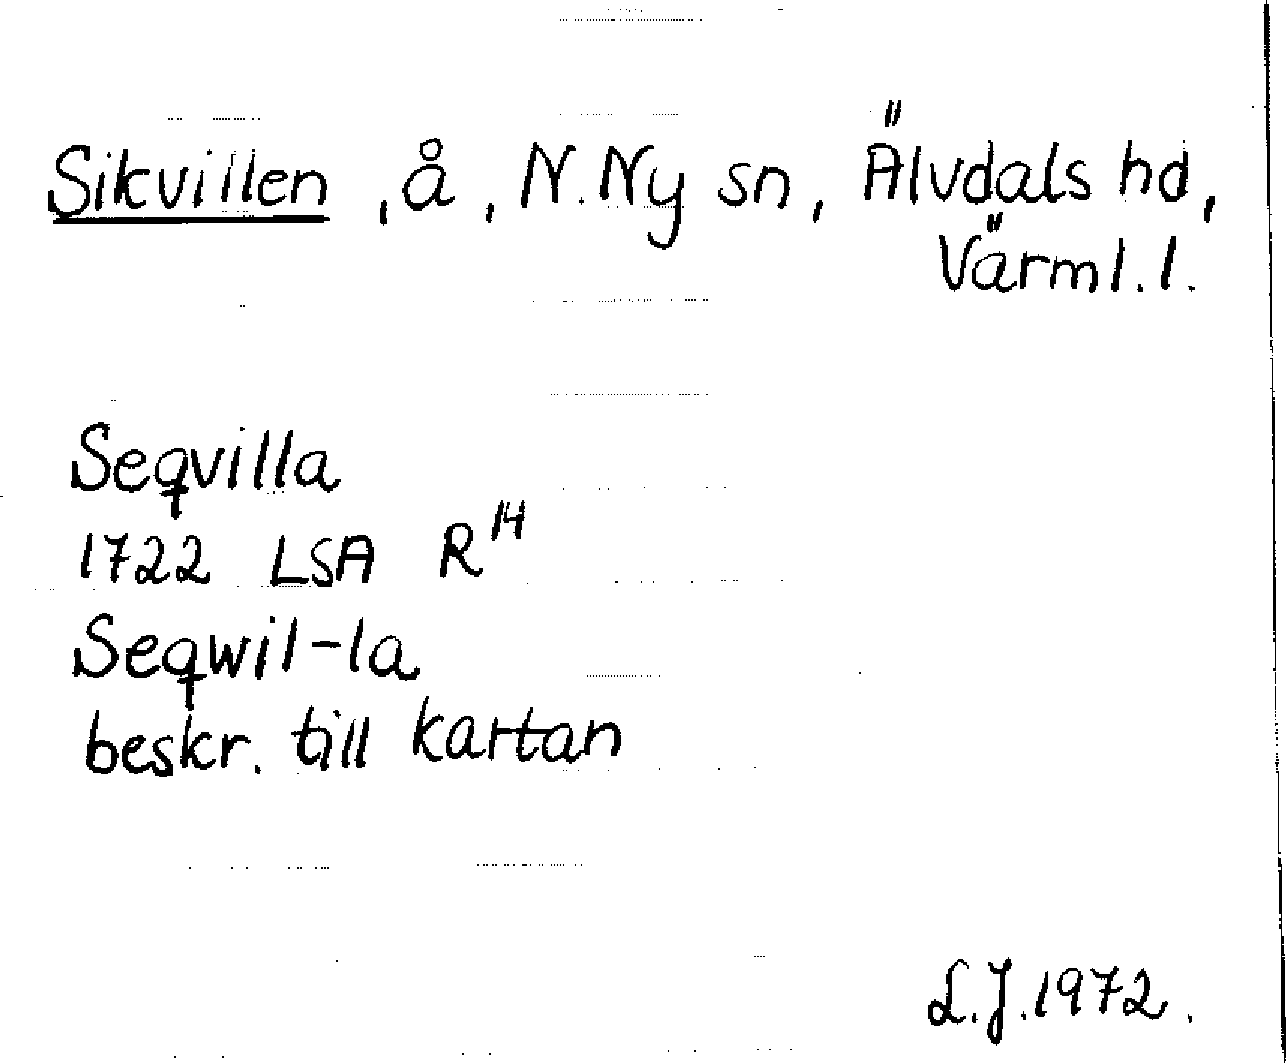 Sikvillen, å, N. Ny sn, Älvdals hd,
Värml. l.
Seqvilla
1722 LSA R 14
Seqwil-la
beskr. till kartan
L.J. 1972.